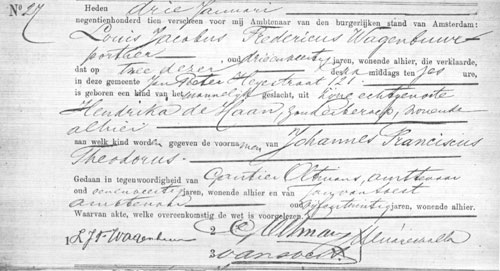 No 27
Heden drie Januari
negentienhonderd tien verscheen voor mij Ambtenaar van den burgerlijken stand van Amsterdam:
Louis Jacobus Fredericus Wagenbuur
portier, oud drieenveertig jaren, wonende alhier, die verklaarde,
dat op twee dezer, des na middags ten zes ure
in deze gemeente
is geboren een kind van het mannelijk geslacht, uit zijne echtgenoote
Hendrika de Haan, zonder beroep, wonende
alhier
aan welk kind worden gegeven de voornamen Johannes Franciscus
Theodorus.
Gedaan in tegenwoordigheid van Oltmans, ambtenaar
oud jaren, wonende alhier en van
ambtenaar oud jaren, wonende alhier.
Waarvan akte, welke overeenkomstig de wet is voorgelezen.
1 LJF Wagenbuur 2
3